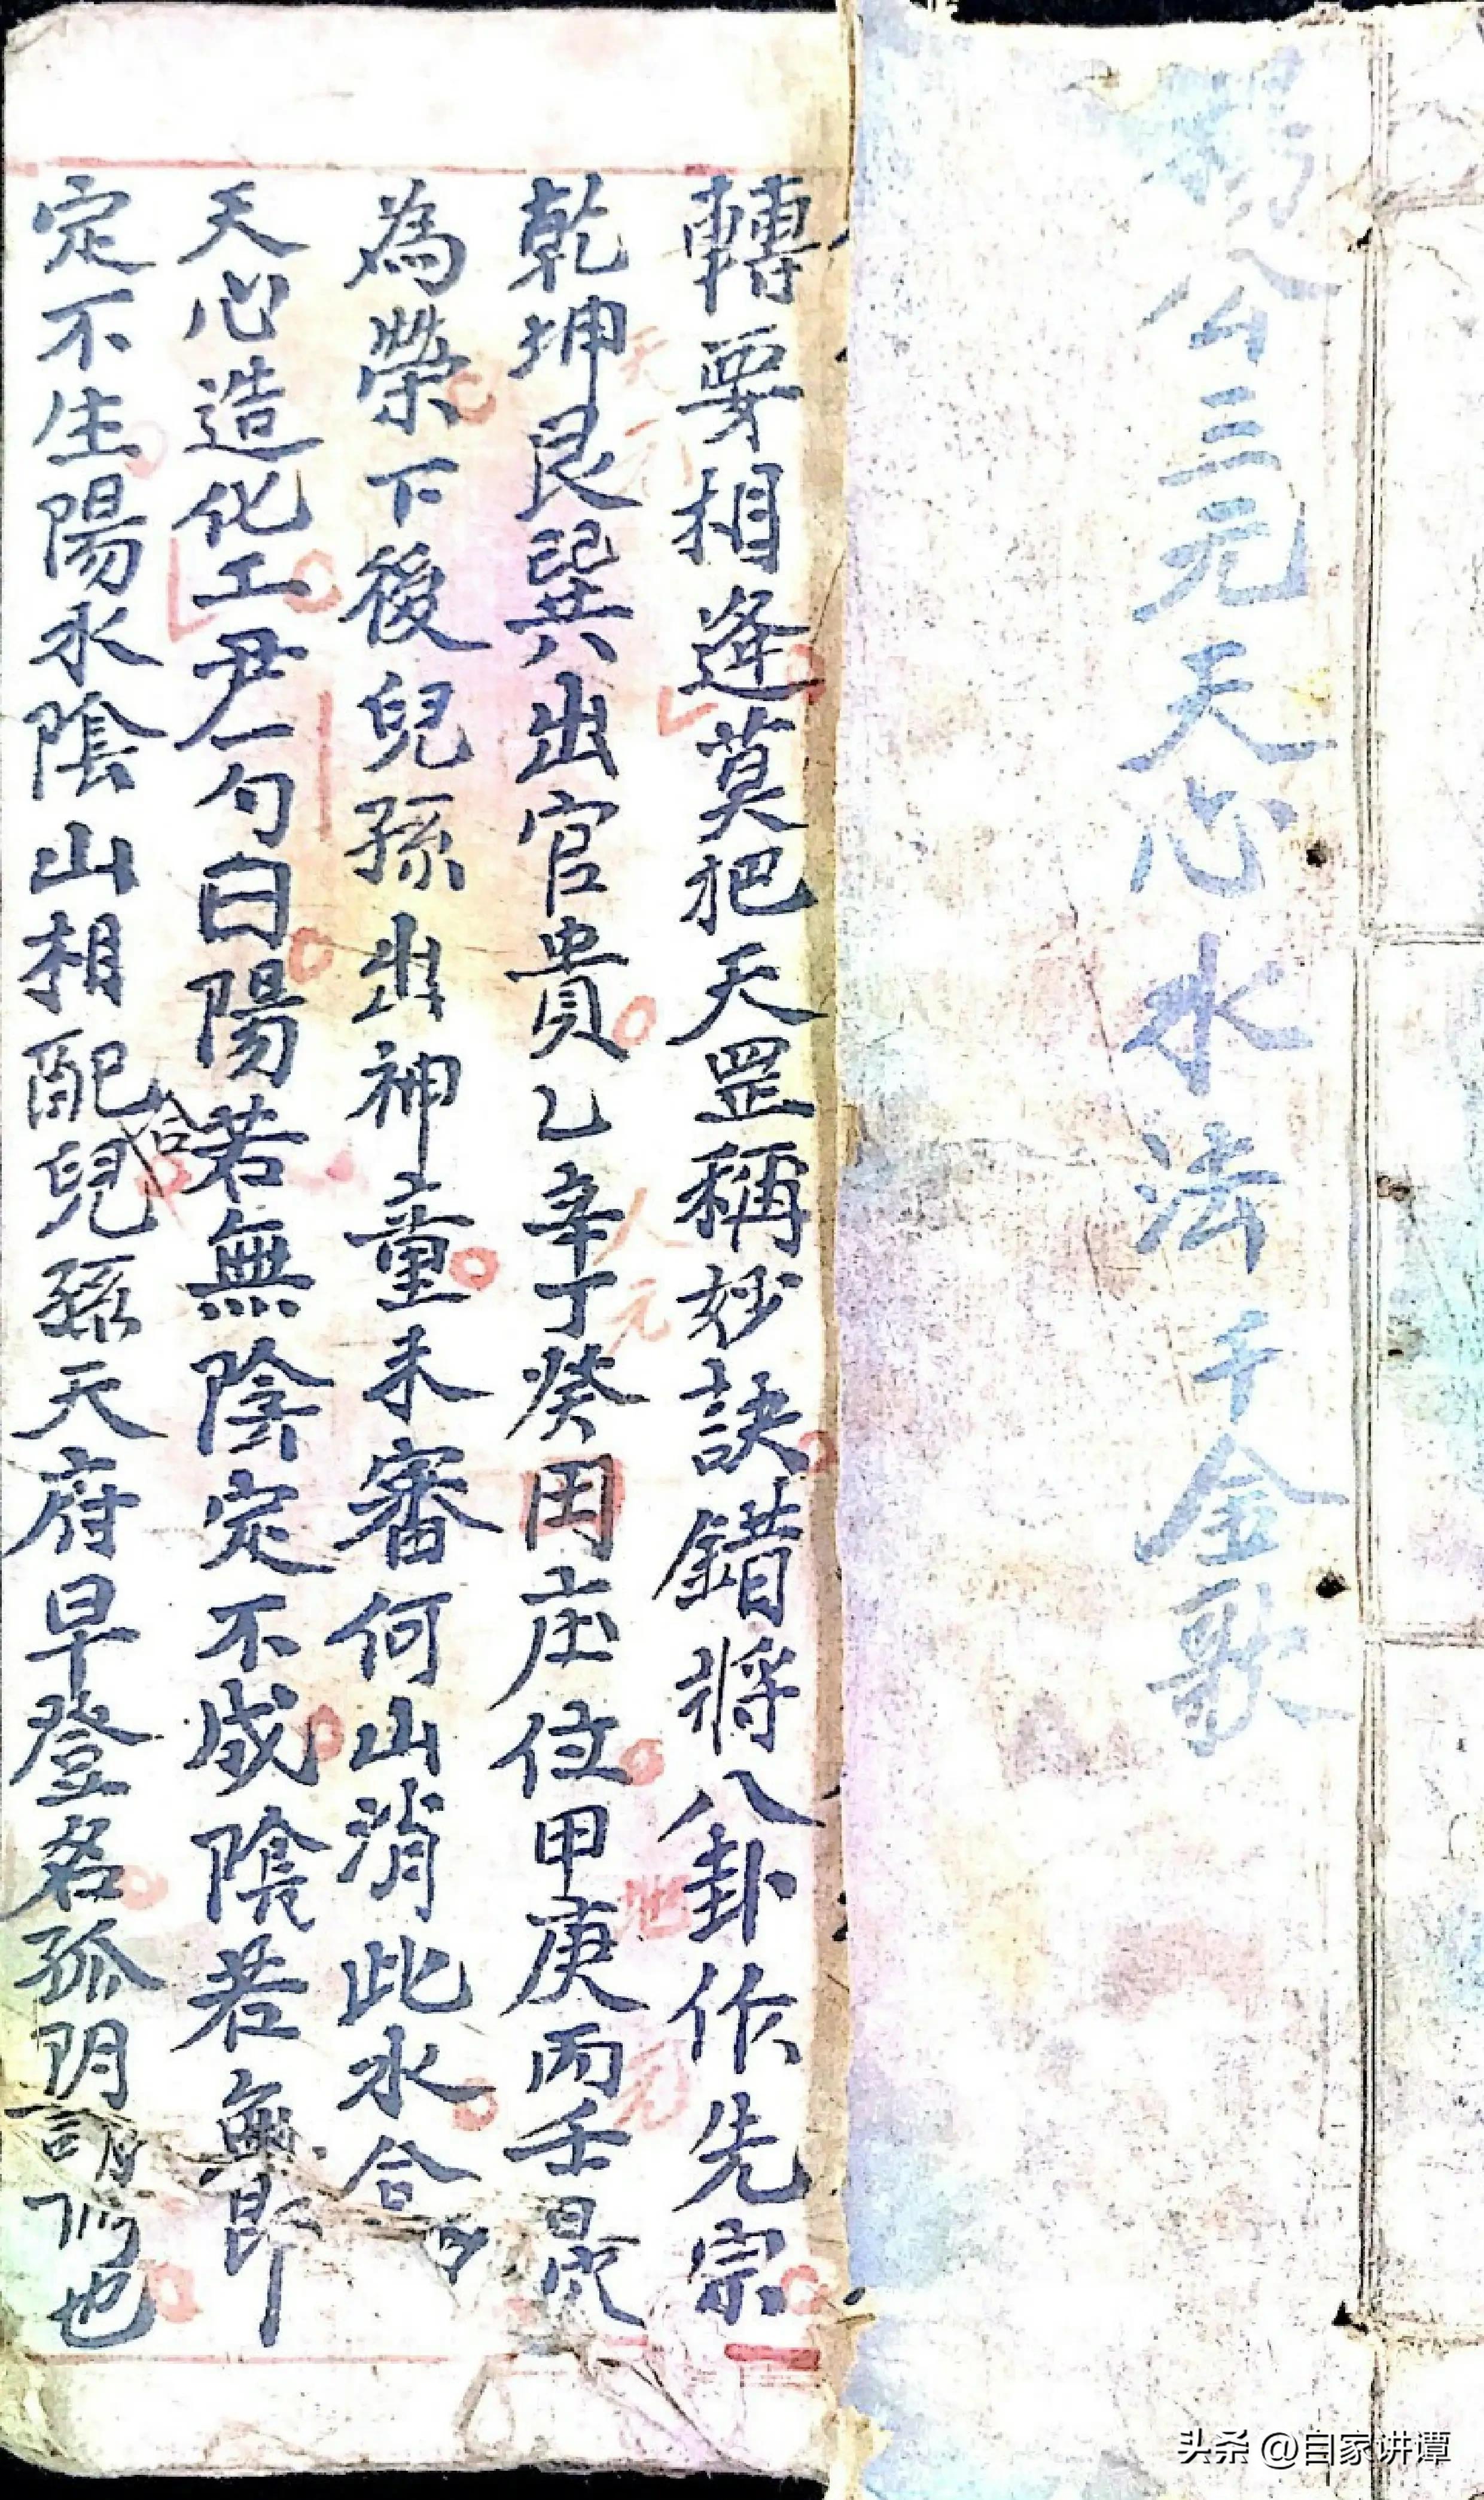 楊公三元天心水法千金歌
轉要相逢莫把天罡稱妙訣錯將八卦作先宗
乾坤艮巽出官貴乙辛丁癸田庄位甲庚丙壬最
為榮下後兒孫出神童未審何山消此水合
天心造化工尹一句曰陽若無陰定不成陰若無即
定不生陽水陰山相配兒孫天府早登名孤阴謂
也
合
天元
人元
地元
头条 @自家讲谭